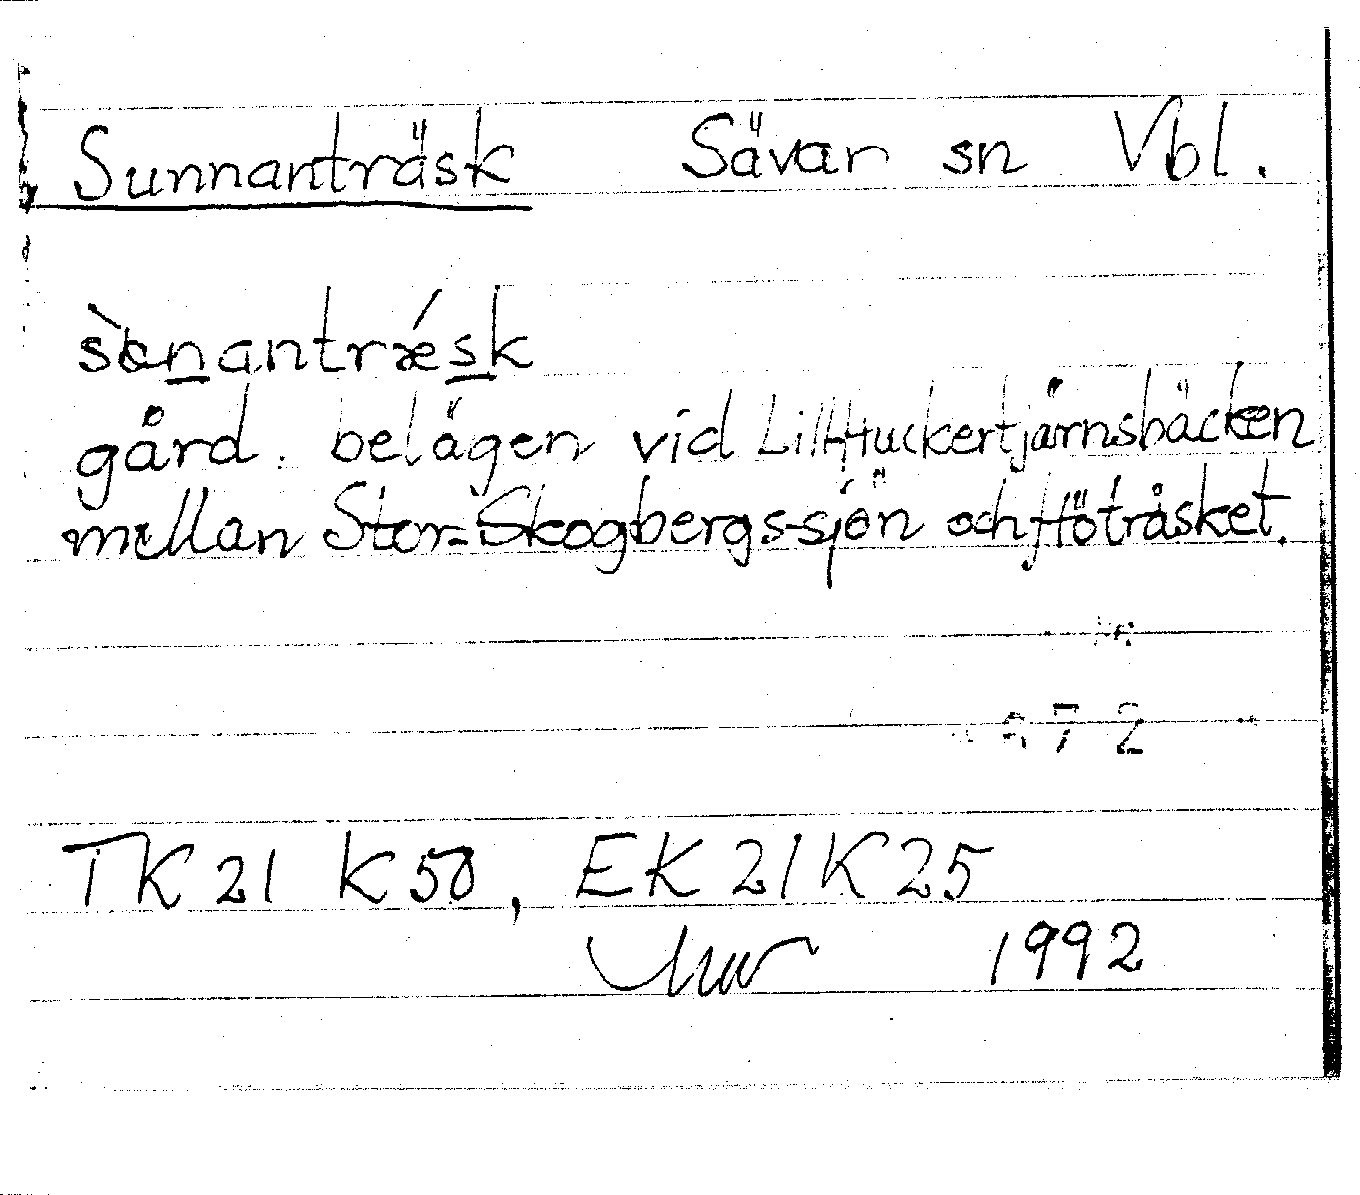 Sunnanträsk Sävar sn Vbl.
gård. belägen vid Lill-Huckertjärnsbäcken
mellan Stor-Skogbergs-sjön och Höträsket.
72
TK 21 K 50, EK 21 K 25
1992